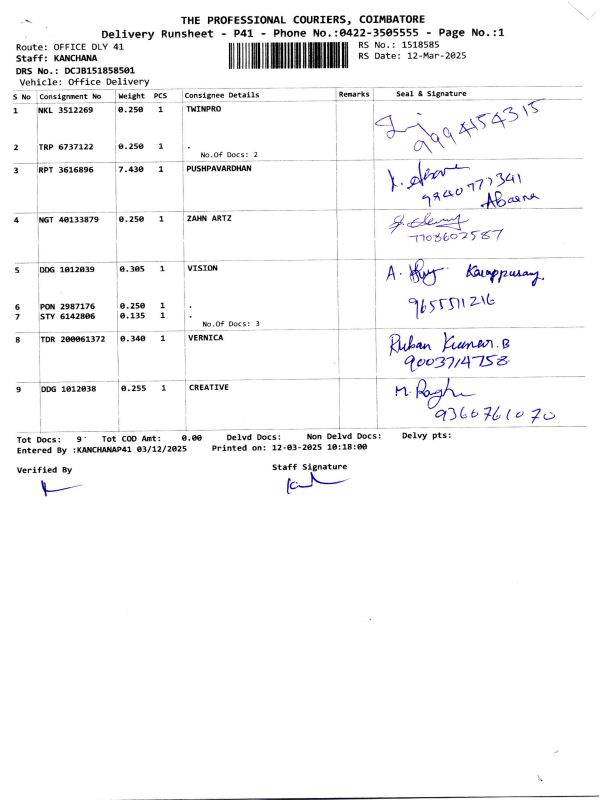 THE PROFESSIONAL COURIERS, COIMBATORE
Delivery Runsheet - P41 - Phone No.:0422-3505555 - Page No.:1
Route: OFFICE DLY 41
RS No.: 1518585
Staff: KANCHANA
RS Date: 12-Mar-2025
DRS No.: DCJB151858501
Vehicle: Office Delivery
S No Consignment No Weight PCS Consignee Details Remarks Seal & Signature
1 NKL 3512269 0.250 1 TWINPRO
9994154315
2 TRP 6737122 0.250 1 .
No.Of Docs: 2
3 RPT 3616896 7.430 1 PUSHPAVARDHAN
9840777341
4 NGT 40133879 0.250 1 ZAHN ARTZ
7708602587
5 DDG 1012039 0.305 1 VISION
A.
6 PON 2987176 0.250 1 .
9655511216
7 STY 6142806 0.135 1 .
No.Of Docs: 3
8 TDR 200061372 0.340 1 VERNICA
Ruban Kumar.B
9003714758
9 DDG 1012038 0.255 1 CREATIVE
9360761070
Tot Docs: 9 Tot COD Amt: 0.00 Delvd Docs: Non Delvd Docs: Delvy pts:
Entered By :KANCHANAP41 03/12/2025 Printed on: 12-03-2025 10:18:00
Verified By
Staff Signature